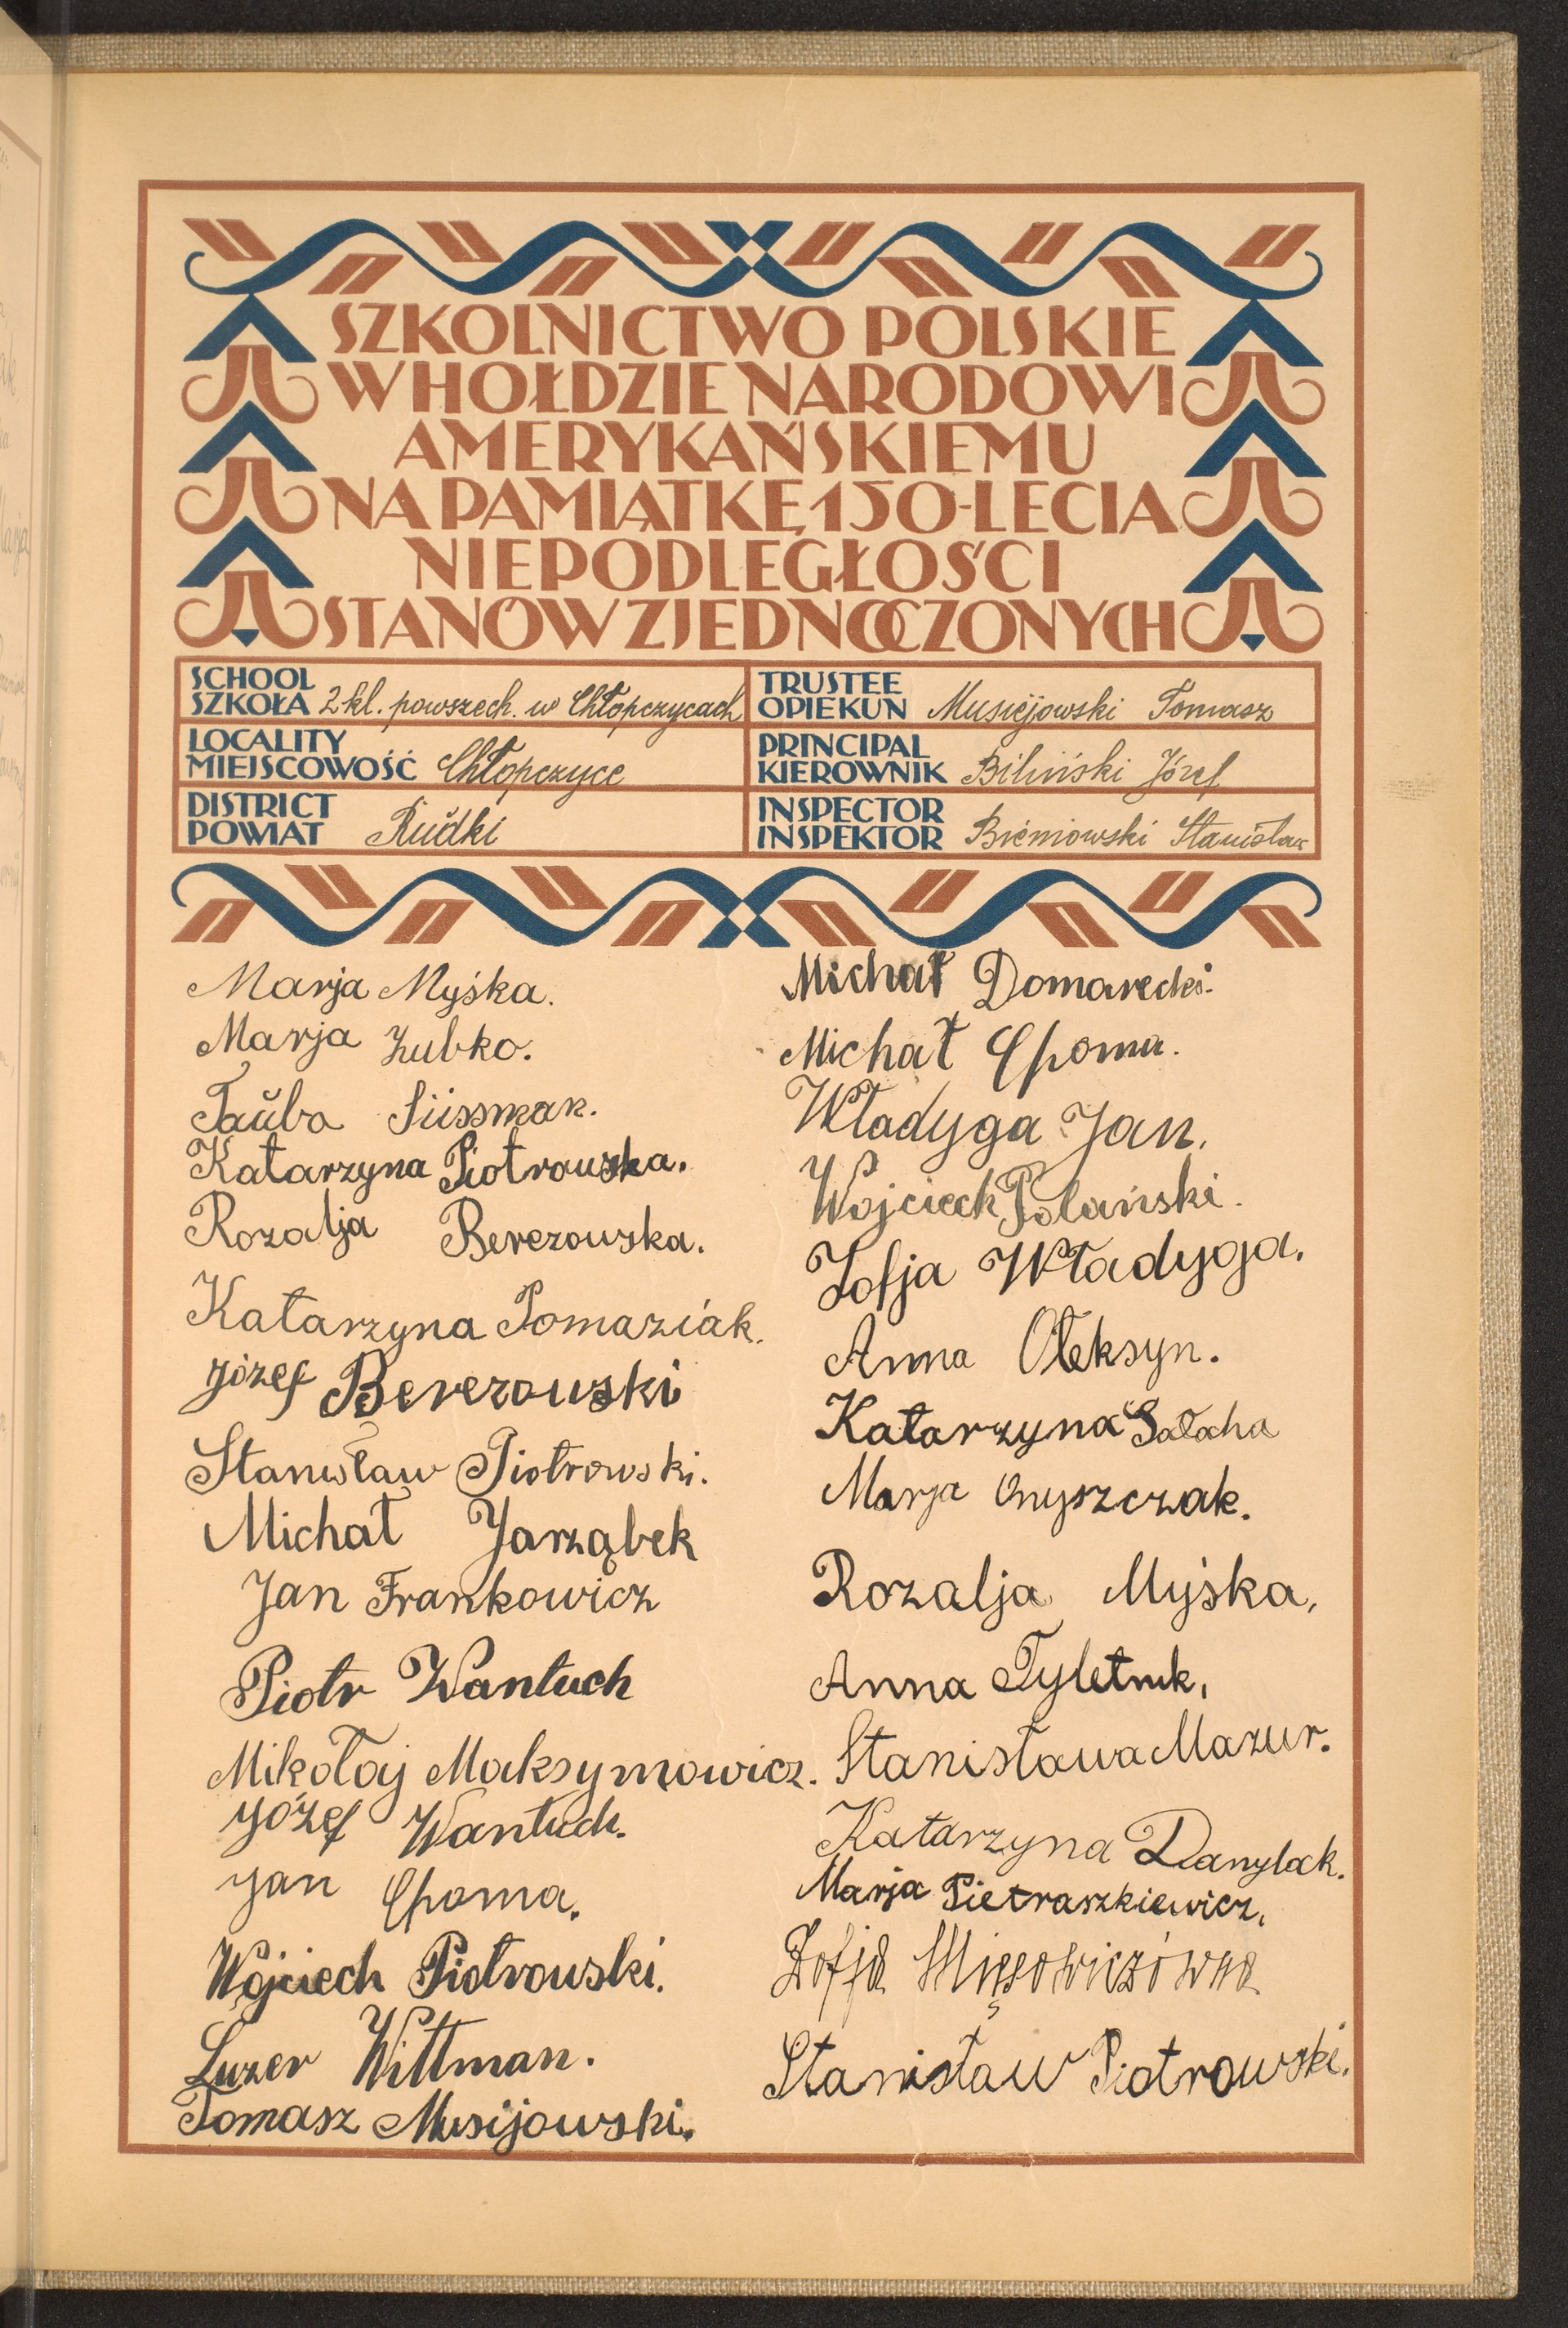 SZKOLNICTWO POLSKIE
W HOŁDZIE NARODOWI
AMERYKAŃSKIEMU
NA PAMIĄTKĘ 150-LECIA
NIEPODLEGŁOŚCI
STANÓW ZJEDNOCZONYCH
SCHOOL
SZKOŁA 2 kl. powszech. w Chłopczycach
TRUSTEE
OPIEKUN Musiejowski Tomasz
LOCALITY
MIEJSCOWOŚĆ Chłopczyce
PRINCIPAL
KIEROWNIK Biliński Józef
DISTRICT
POWIAT Rudki
INSPECTOR
INSPEKTOR Bieniowski Stanisław
Marja Myśka.
Marja Zubko.
Tauba Süssman.
Katarzyna Piotrowska.
Rozalja Berezowska.
Katarzyna Pomaziak.
Józef Berezowski
Stanisław Piotrowski.
Michał Jarząbek
Jan Frankowicz
Piotr Wantuch
Mikołaj Maksymowicz.
Józef Wantuch.
Jan Czoma.
Wojciech Piotrowski.
Luzer Wittman.
Tomasz Musijowski.
Michał Domarecki.
Michał Czoma.
Władyga Jan.
Wojciech Polański.
Zofja Władyga.
Anna Oleksyn.
Katarzyna Sałaha
Marja Onyszczak.
Rozalja Myśka,
Anna
Stanisława Mazur.
Katarzyna Danylak.
Marja Pietraszkiewicz,
Zofja Mięsowiczówna
Stanisław Piotrowski.